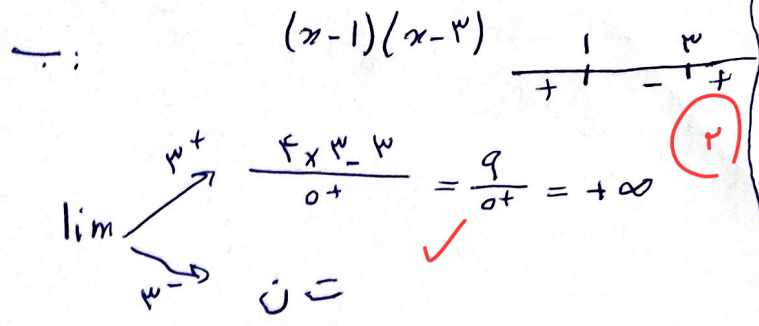 ب: (x-1)(x-۳)
۱ ۳
+ - +
۲
lim ۳+ (۴×۳-۳)/0+ = ۹/0+ = +∞
۳- ت ن